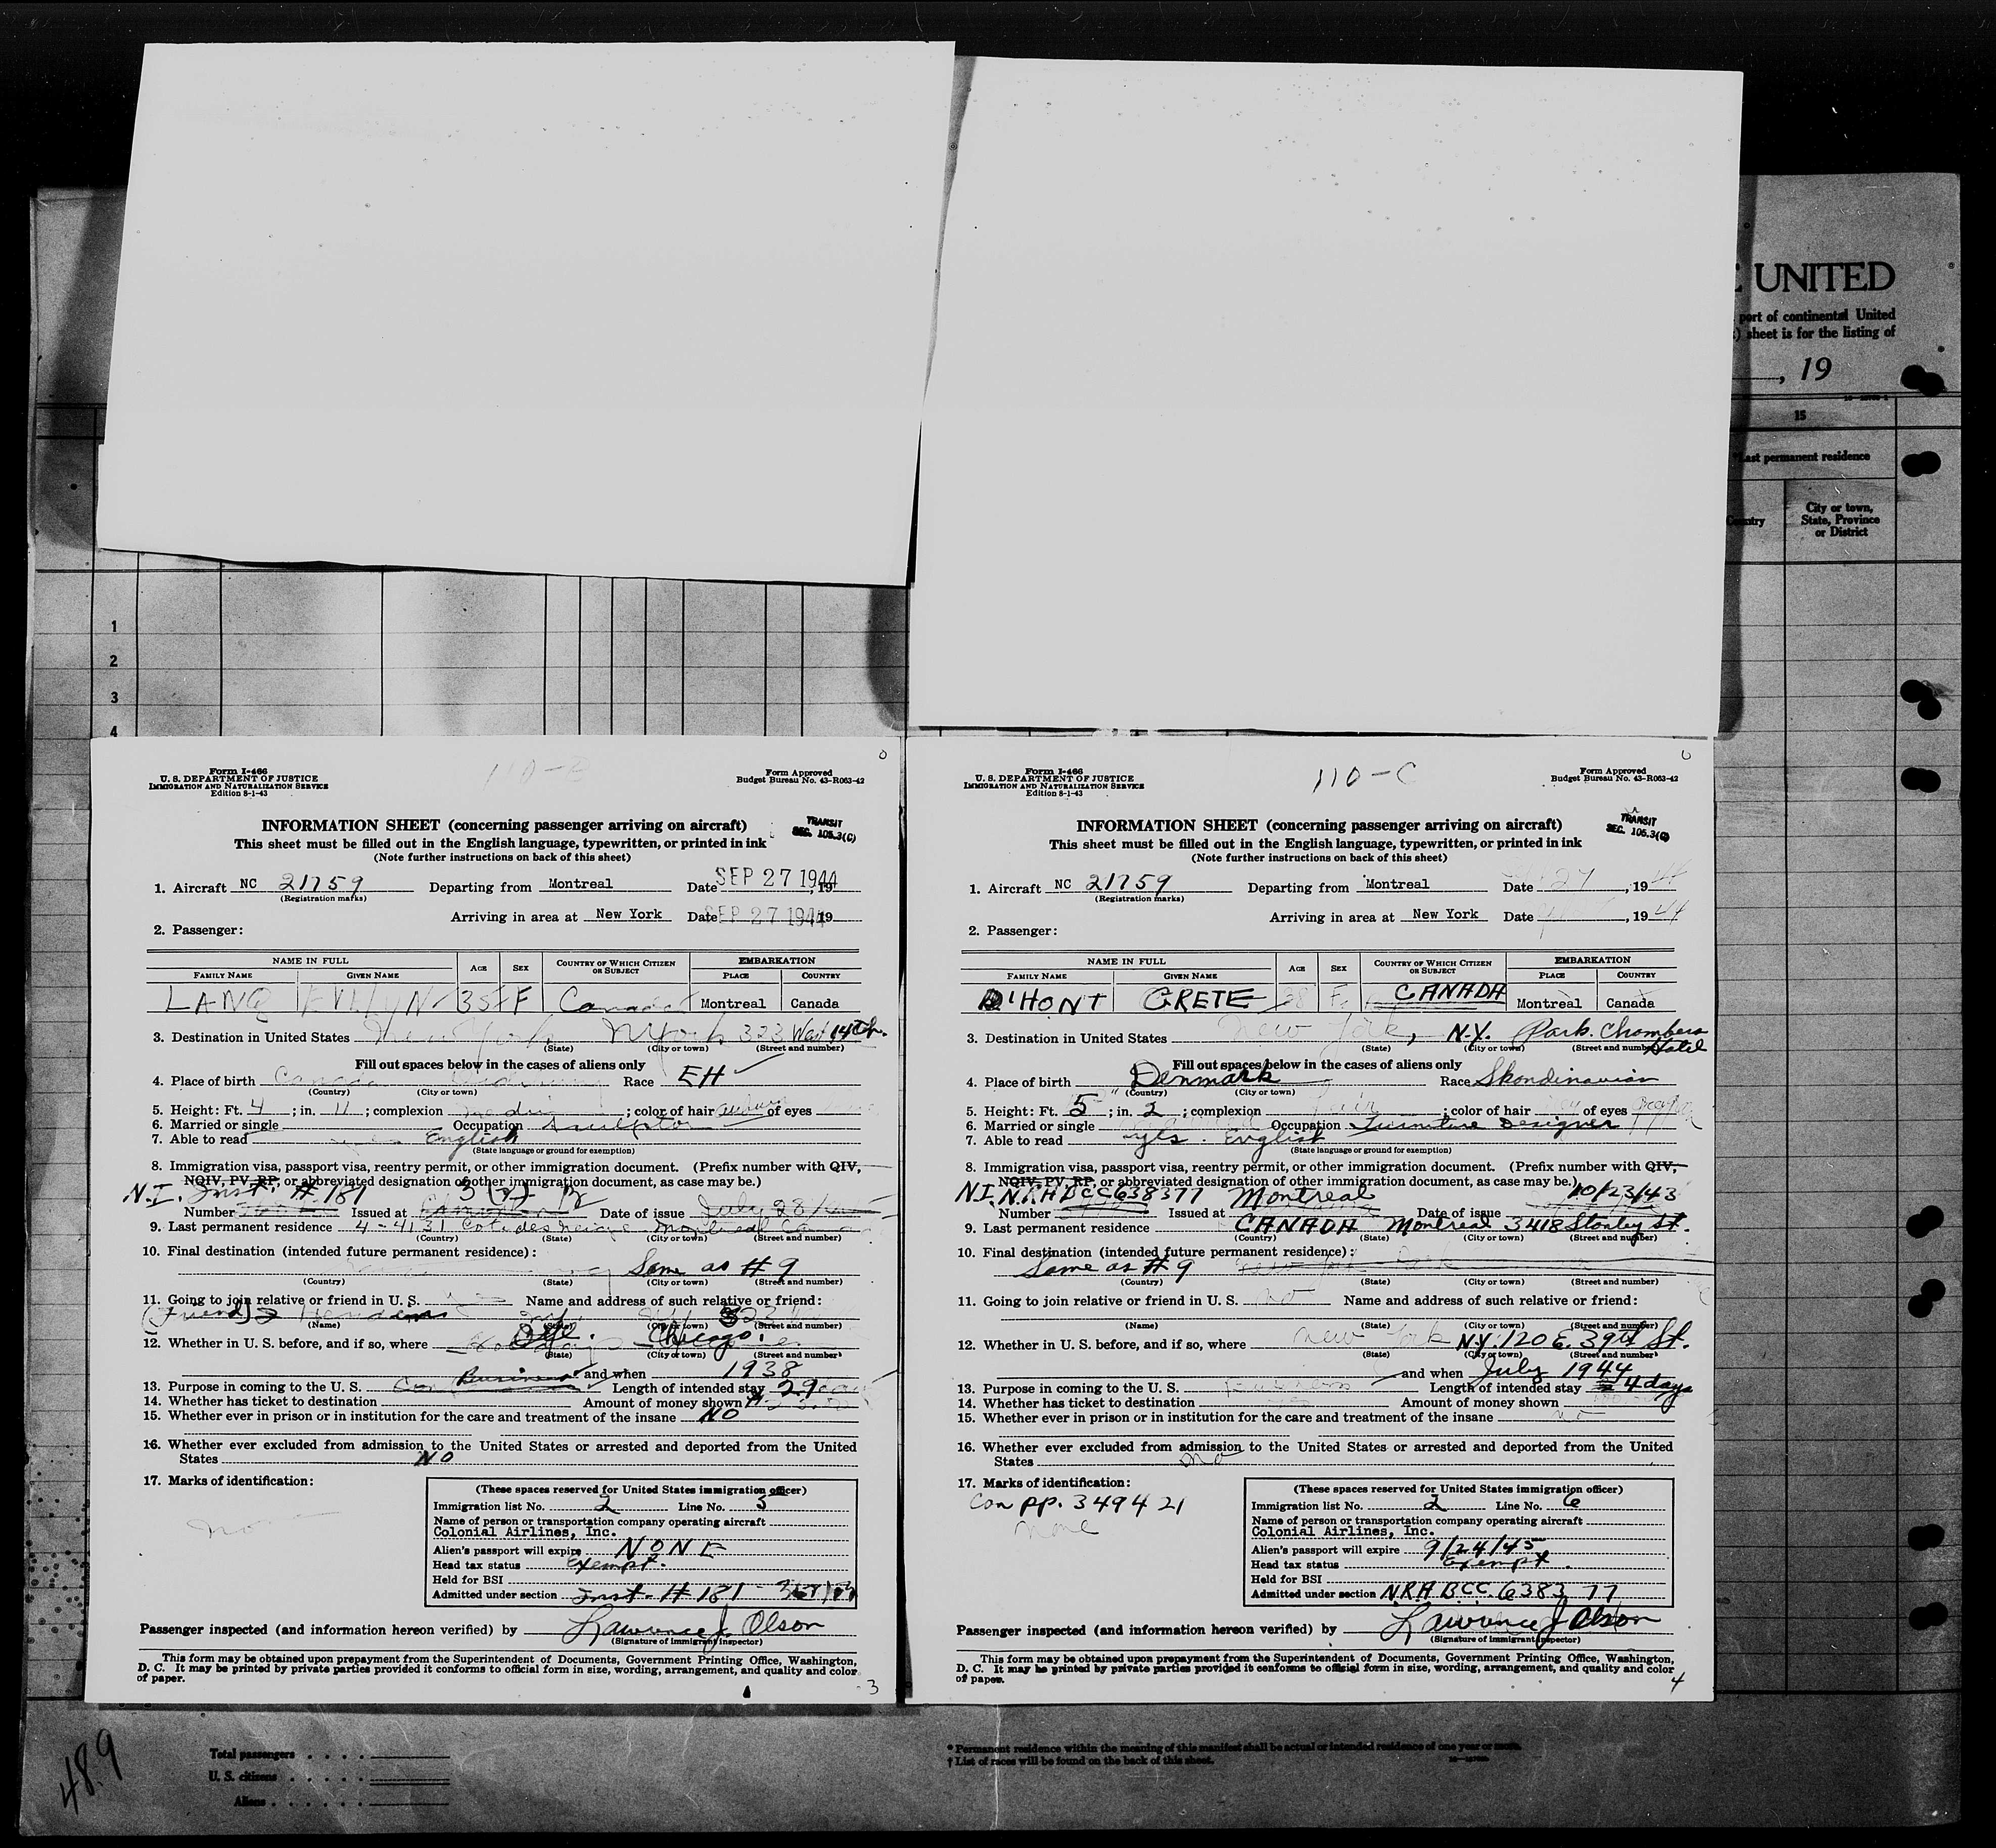 UNITED
port of continental United
sheet is for the listing of
, 19
15
Last permanent residence
Country
City or town,
State, Province
or District
1
2
3
4
Form I-466
U. S. DEPARTMENT OF JUSTICE
IMMIGRATION AND NATURALIZATION SERVICE
Edition 8-1-43
Form Approved
Budget Bureau No. 43-R063-42
INFORMATION SHEET (concerning passenger arriving on aircraft)
TRANSIT
SEC. 105.3(C)
This sheet must be filled out in the English language, typewritten, or printed in ink
(Note further instructions on back of this sheet)
1. Aircraft NC 21759 Departing from Montreal Date SEP 27 1944, 19
(Registration marks)
Arriving in area at New York Date SEP 27 1944 19
2. Passenger:
NAME IN FULL AGE SEX COUNTRY OF WHICH CITIZEN OR SUBJECT EMBARKATION
FAMILY NAME GIVEN NAME PLACE COUNTRY
LANG EVELYN 35 F Canada Montreal Canada
3. Destination in United States New York N York 323 West 14th.
(State) (City or town) (Street and number)
Fill out spaces below in the cases of aliens only
4. Place of birth Canada Race EH
(Country) (City or town)
5. Height: Ft. 4 ; in. 11 ; complexion ; color of hair auburn of eyes
6. Married or single Occupation Sculptor
7. Able to read English
(State language or ground for exemption)
8. Immigration visa, passport visa, reentry permit, or other immigration document. (Prefix number with QIV,
NQIV, PV, RP, or abbreviated designation of other immigration document, as case may be.)
N.I. Inst. # 181
Number Issued at Date of issue July 28
9. Last permanent residence 4-4131 Cote des neige Montreal
(Country) (State) (City or town) (Street and number)
10. Final destination (intended future permanent residence):
Same as # 9
(Country) (State) (City or town) (Street and number)
11. Going to join relative or friend in U. S. Name and address of such relative or friend:
(Friend)
(Name) (State) (City or town) (Street and number)
12. Whether in U. S. before, and if so, where Chicago.
(State) (City or town) (Street and number)
and when 1938
13. Purpose in coming to the U. S. Business Length of intended stay 29
14. Whether has ticket to destination Amount of money shown
15. Whether ever in prison or in institution for the care and treatment of the insane NO
16. Whether ever excluded from admission to the United States or arrested and deported from the United
States NO
17. Marks of identification:
(These spaces reserved for United States immigration officer)
Immigration list No. 2 Line No. 5
Name of person or transportation company operating aircraft
Colonial Airlines, Inc.
Alien's passport will expire NONE
Head tax status Exempt.
Held for BSI
Admitted under section Inst - # 181
Passenger inspected (and information hereon verified) by Lawrence J. Olson
(Signature of immigrant inspector)
This form may be obtained upon prepayment from the Superintendent of Documents, Government Printing Office, Washington,
D. C. It may be printed by private parties provided it conforms to official form in size, wording, arrangement, and quality and color
of paper.
3
Form I-466
U. S. DEPARTMENT OF JUSTICE
IMMIGRATION AND NATURALIZATION SERVICE
Edition 8-1-43
110-C
Form Approved
Budget Bureau No. 43-R063-42
INFORMATION SHEET (concerning passenger arriving on aircraft)
TRANSIT
SEC. 105.3(C)
This sheet must be filled out in the English language, typewritten, or printed in ink
(Note further instructions on back of this sheet)
1. Aircraft NC 21759 Departing from Montreal Date 27, 19 44
(Registration marks)
Arriving in area at New York Date , 19 44
2. Passenger:
NAME IN FULL AGE SEX COUNTRY OF WHICH CITIZEN OR SUBJECT EMBARKATION
FAMILY NAME GIVEN NAME PLACE COUNTRY
D'HONT GRETE 38 F. CANADA Montreal Canada
3. Destination in United States New York, N.Y. Park. Chambers Hotel
(State) (City or town) (Street and number)
Fill out spaces below in the cases of aliens only
4. Place of birth Denmark Race Skondinavian
(Country) (City or town)
5. Height: Ft. 5 ; in. 2 ; complexion Fair ; color of hair of eyes
6. Married or single Occupation Furniture Designer
7. Able to read yes. English
(State language or ground for exemption)
8. Immigration visa, passport visa, reentry permit, or other immigration document. (Prefix number with QIV,
NQIV, PV, RP, or abbreviated designation of other immigration document, as case may be.)
N.I. N.R.H BCC 638377 Montreal 10/23/43
Number Issued at Date of issue
9. Last permanent residence CANADA Montreal 3418 Stanley St.
(Country) (State) (City or town) (Street and number)
10. Final destination (intended future permanent residence):
Same as # 9
(Country) (State) (City or town) (Street and number)
11. Going to join relative or friend in U. S. no Name and address of such relative or friend:
(Name) (State) (City or town) (Street and number)
12. Whether in U. S. before, and if so, where New York N.Y. 120 E. 39th St.
(State) (City or town) (Street and number)
and when July 1944
13. Purpose in coming to the U. S. Business Length of intended stay 4 days
14. Whether has ticket to destination yes Amount of money shown
15. Whether ever in prison or in institution for the care and treatment of the insane no
16. Whether ever excluded from admission to the United States or arrested and deported from the United
States no
17. Marks of identification:
Can pp. 349421
none
(These spaces reserved for United States immigration officer)
Immigration list No. 2 Line No. 6
Name of person or transportation company operating aircraft
Colonial Airlines, Inc.
Alien's passport will expire 9/24/45
Head tax status Exempt.
Held for BSI
Admitted under section N.R.H BCC. 638377
Passenger inspected (and information hereon verified) by Lawrence J Olson
(Signature of immigrant inspector)
This form may be obtained upon prepayment from the Superintendent of Documents, Government Printing Office, Washington,
D. C. It may be printed by private parties provided it conforms to official form in size, wording, arrangement, and quality and color
of paper.
4
489
Total passengers . . . .
U. S. citizens . . . . .
Aliens . . . . . .
* Permanent residence within the meaning of this manifest shall be actual or intended residence of one year or more.
† List of races will be found on the back of this sheet.